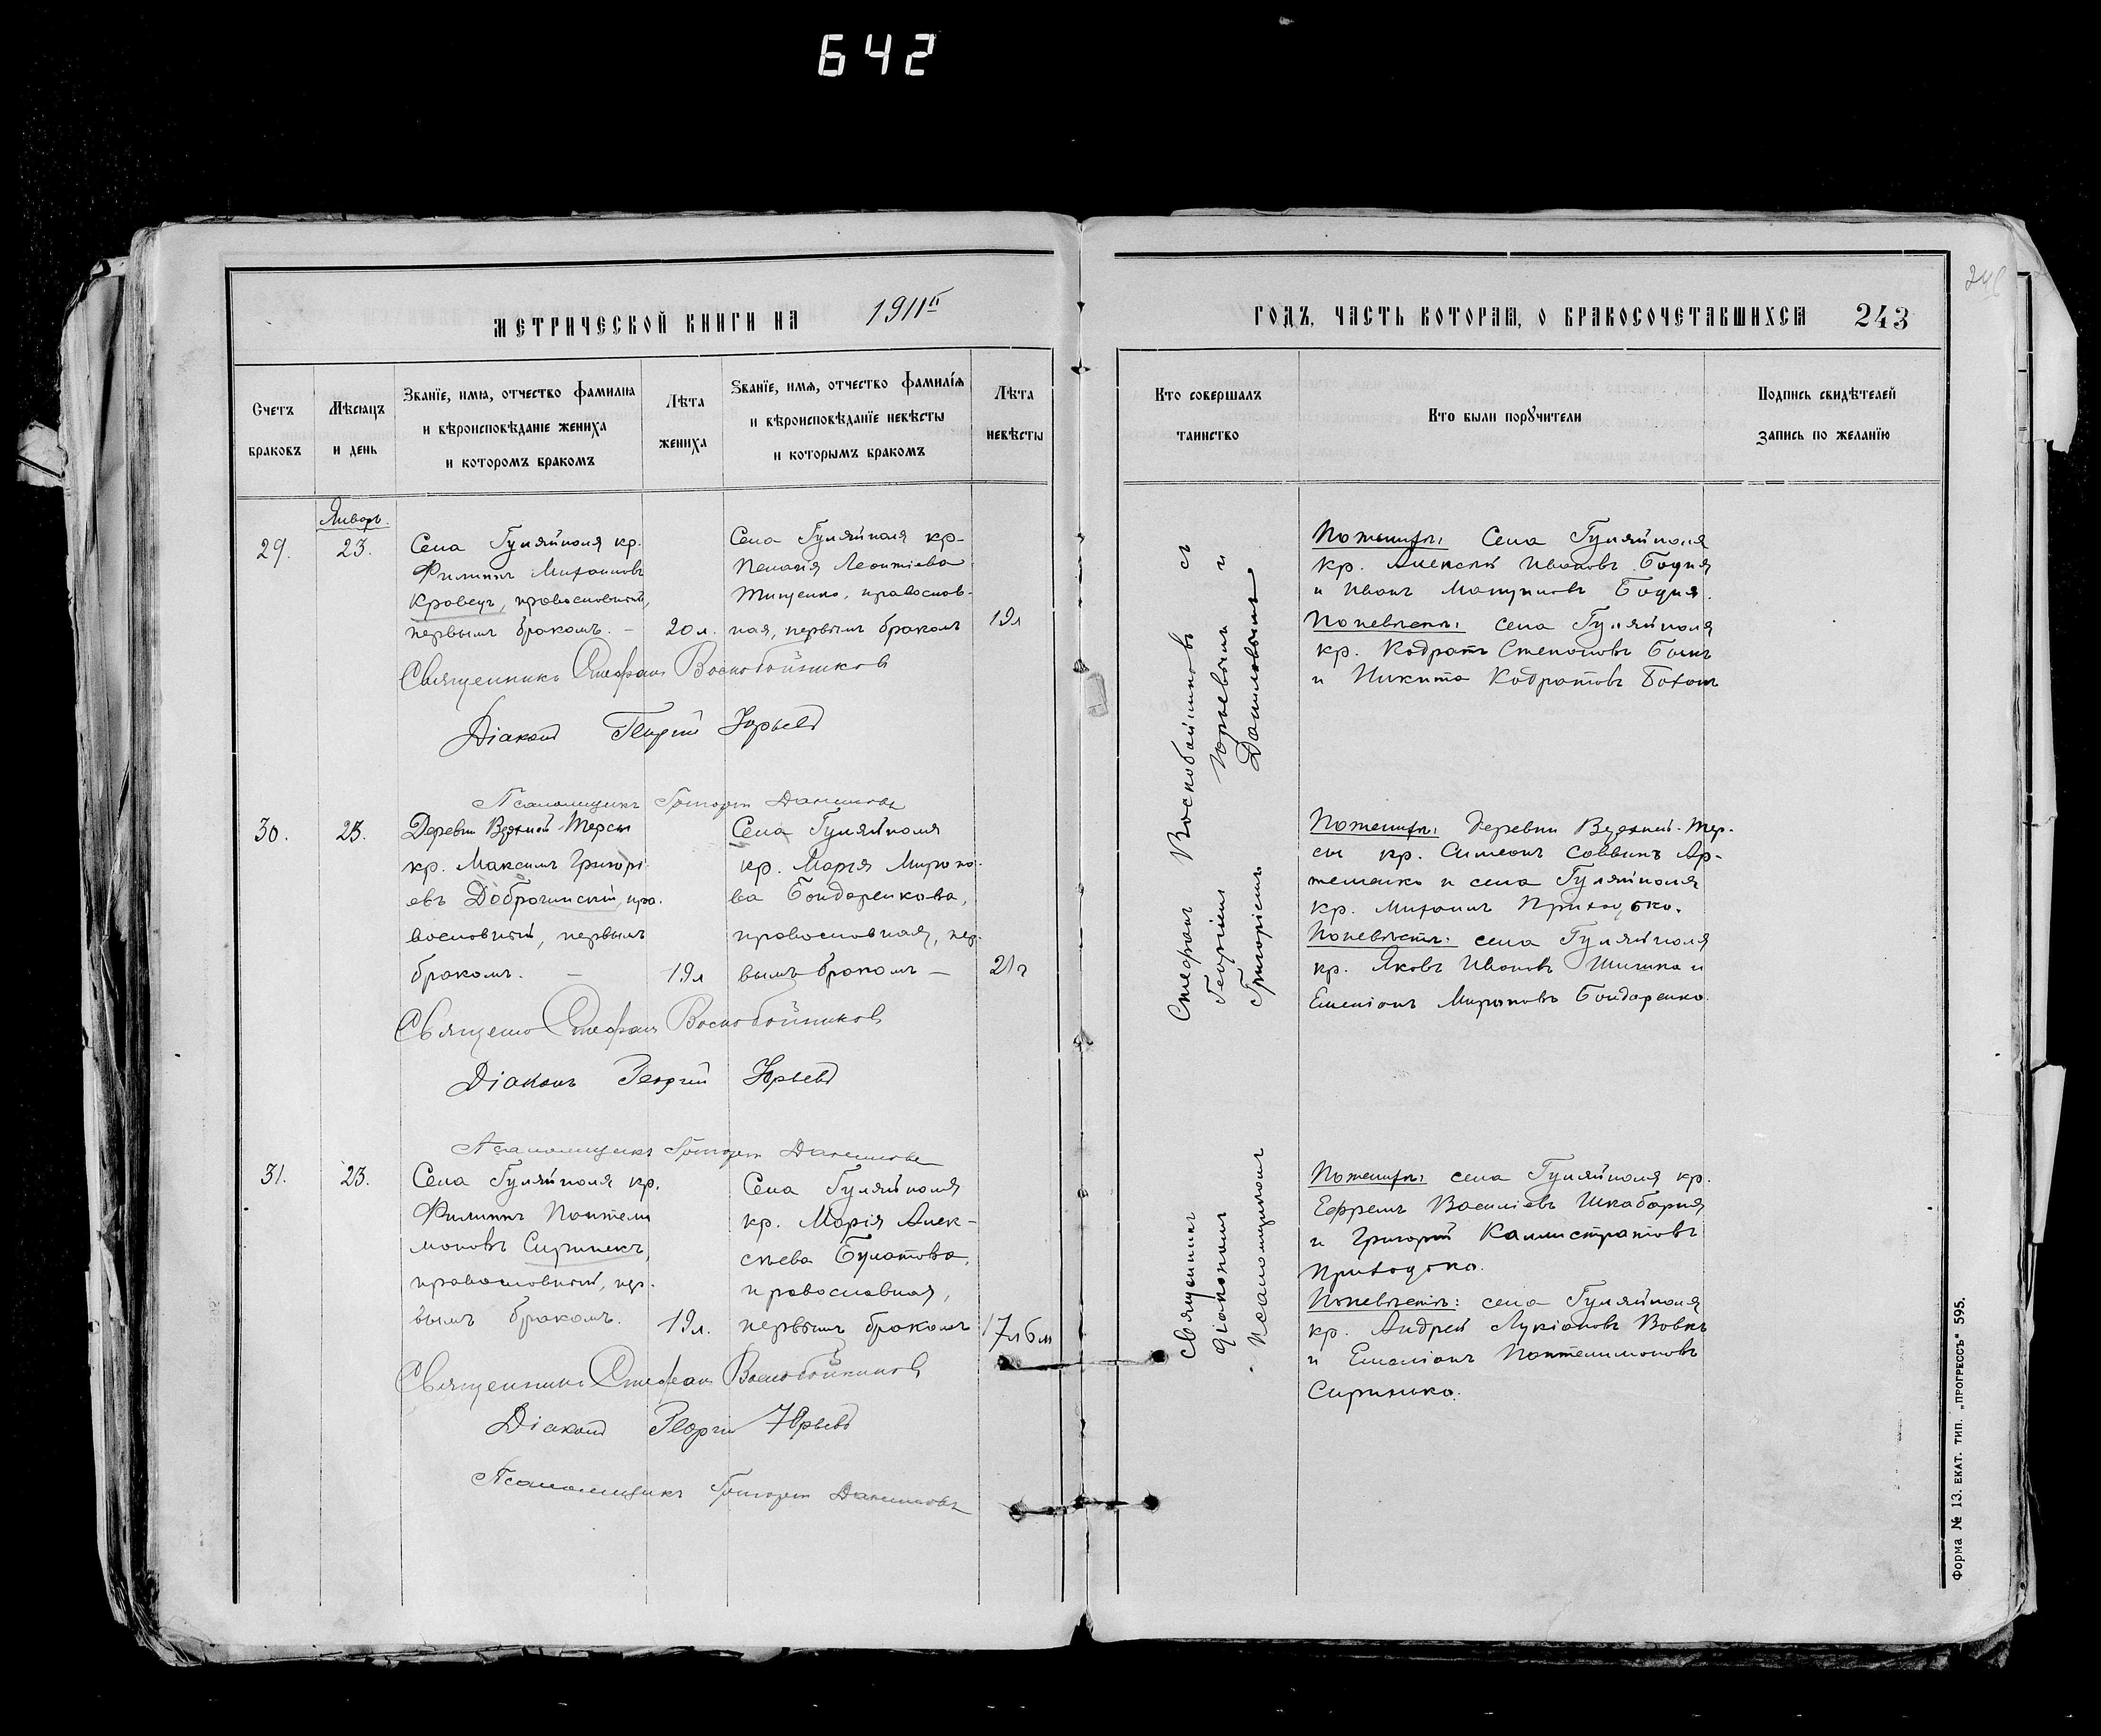 642
МЕТРИЧЕСКОЙ КНИГИ НА 1911й
ГОДЪ, ЧАСТЬ ВТОРАЯ, О БРАКОСОЧЕТАВШИХСЯ 243
Счетъ браковъ
Мѣсяцъ и день
Званіе, имя, отчество фамилия
и вѣроисповѣданіе жениха
и которомъ бракомъ
Лѣта жениха
Званіе, имя, отчество фамилія
и вѣроисповѣданіе невѣсты
и которымъ бракомъ
Лѣта невѣсты
Кто совершалъ таинство
Кто были поручители
Подпись свидѣтелей
запись по желанію
Январь.
29.
23.
Села Гуляйполя кр.
Филиппъ Михаиловъ
Кравецъ, православный,
первымъ бракомъ. –
20 л.
Села Гуляйполя кр-
Пелагія Леонтіева
Тищенко, православ-
ная, первымъ бракомъ
19 л
Священникъ Стефанъ Воскобойников
Діаконъ Георгій Юрьевъ
Псаломщикъ Григорій Даниловъ
По женихѣ: Села Гуляйполя
кр. Алексѣй Ивановъ Бодня
и Иванъ Бодня.
По невѣстѣ: села Гуляйполя
кр. Кодратъ Степановъ
и Никита Кодратовъ
30.
23.
Деревни Верхней-Терсы
кр. Максимъ Григорі-
евъ Доброчинскій, пра-
вославный, первымъ
бракомъ. –
19 л
Села Гуляйполя
кр. Марія Мироно-
ва Бондаренкова,
православная, пер-
вымъ бракомъ –
21 г
Стефанъ Воскобойников
Діаконъ Георгій Юрьевъ
Псаломщикъ Григорій Даниловъ
По женихѣ: деревни Верхней-Тер-
сы кр. Симеонъ Саввинъ Ар-
теменко и села Гуляйполя
кр. Михаилъ Приходько.
По невѣстѣ: села Гуляйполя
кр. Яковъ Ивановъ Шишка и
Емеліанъ Мироновъ Бондаренко.
31.
23.
Села Гуляйполя кр.
Филиппъ Пантели-
моновъ Сиринекъ,
православный, пер-
вымъ бракомъ.
19 л.
Села Гуляйполя
кр. Марія Алек-
сѣева Булатова,
православная,
первымъ бракомъ
17 л 6 м
Священникъ Стефанъ Воскобойников
Діаконъ Георгій Юрьевъ
Псаломщикъ Григорій Даниловъ
По женихѣ: села Гуляйполя кр.
Ефремъ Василіевъ Шкабарня
и Григорій Каллистратовъ
Приходько.
По невѣстѣ: села Гуляйполя
кр. Андрей Лукіановъ Вовкъ
и Емеліанъ Пантелимоновъ
Сиринько.
Священникъ Стефанъ Воскобойниковъ съ
діакономъ Георгіемъ Юрьевымъ и
псаломщикомъ Григоріемъ Даниловымъ
Форма № 13. ЕКАТ. ТИП. „ПРОГРЕССЪ“ 595.